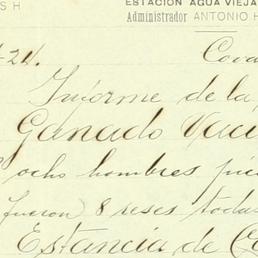 S H
ESTACIÓN AGUA VIEJA
Administrador ANTONIO H
-21.
Informe de la
Ganado Vacu
ocho hombres
fueron 8 reses todas
Estancia de Co